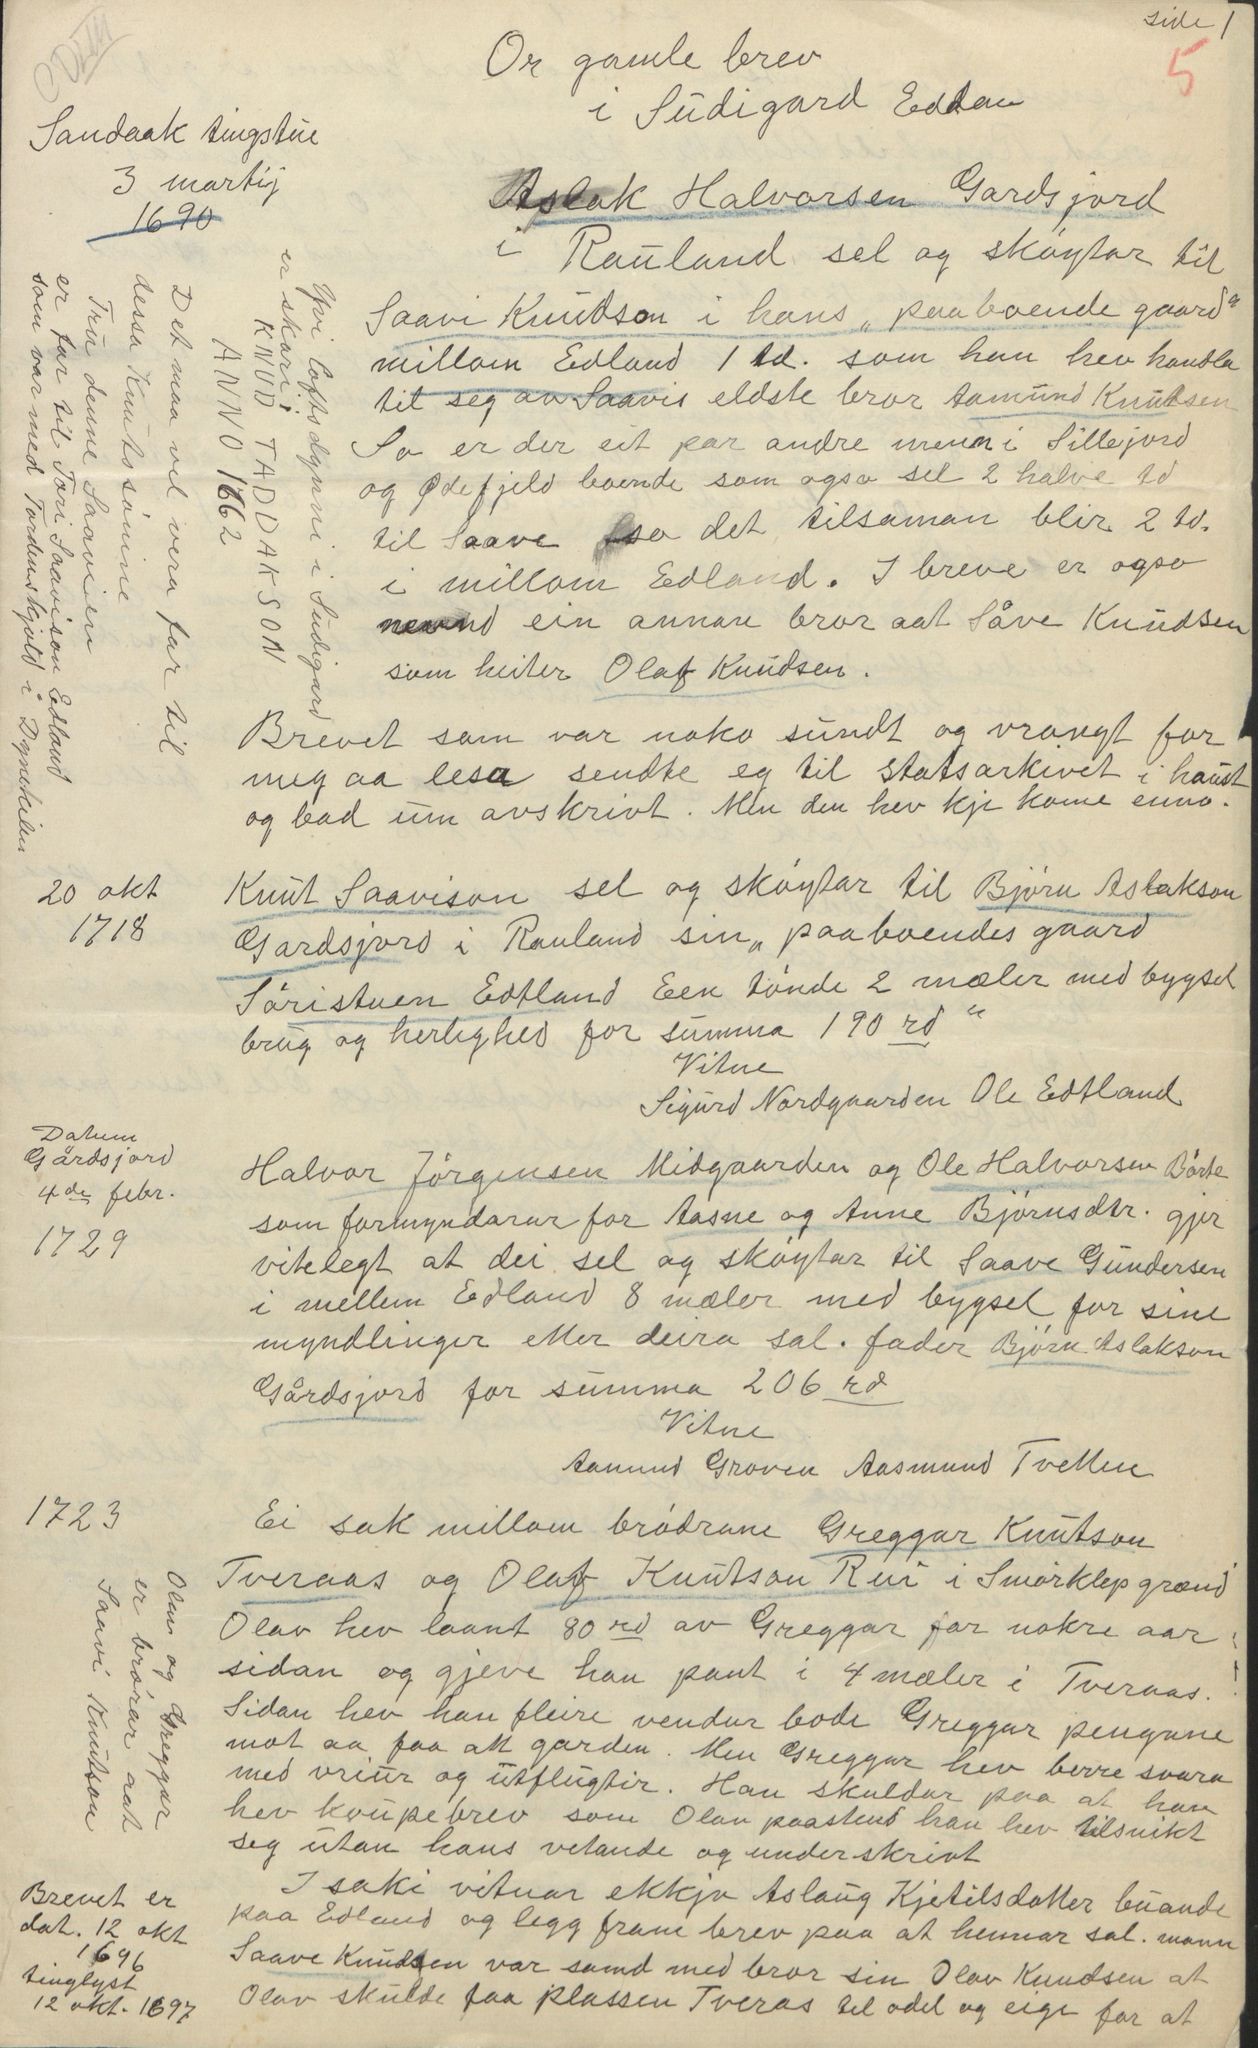 side 1
5
Or gamle brev
i Sudigard Edlan
Sandaak tingstue
3 martij
1690
Aslak Halvorsen Gardsjord
i Rauland sel og skøytar til
Saavi Knudson i hans „paaboende gaard“
millom Edland 1 td. som han hev handla
til seg av Saavis eldste bror Aamund Knudsen
So er der eit par andre menn i Sillejord
og Ødefjeld boende som ogso sel 2 halve td
til Saave so det tilsaman blir 2 td.
i millom Edland. I breve er ogso
nevnd ein annan bror aat Såve Knudsen
som heiter Olaf Knudsen.
Yvi loftsdynni i Sudigard
er skari:
KNUD TADDAKSON
ANNO 1662
Det maa vel vera far til
dessa Knutssønine
Tru denne Saavien
er far til Tori Saavison Edland
som var med Tordenskjold i Dynekilen
Brevet som var noko sundt og vrangt for
meg aa lesa sendte eg til statsarkivet i haust
og bad um avskrivt. Men den hev kje kome enno.
20 okt
1718
Knut Saavison sel og skøytar til Bjørn Aslakson
Gardsjord i Rauland sin „paaboendes gaard
Søristuen Edtland Een tønde 2 mæler med bygsel
brug og herlighed for summa 190 rd“
Vitne
Sigurd Nordgaarden Ole Edtland
Datum
Gårdsjord
4de febr.
1729
Halvor Jørgensen Midgaarden og Ole Halvorsen Børte
som formyndarar for Aasne og Anne Bjørnsdtr. gjer
vitelegt at dei sel og skøytar til Saave Gundersen
i mellem Edland 8 mæler med bygsel for sine
myndlinger etter deira sal. fader Bjørn Aslakson
Gårdsjord for summa 206 rd
Vitne
Aamund Groven Aasmund Tvetten
1723
Ei sak millom brødrane Greggar Knutson
Tveraas og Olaf Knutson Rui i Smørklep grend
Olav hev laant 80 rd av Greggar for nokre aar
sidan og gjeve han pant i 4 mæler i Tveraas.
Sidan hev han fleire vendur bode Greggar pengane
mot aa faa att garden. Men Greggar hev berre svara
med vriur og utflugtir. Han skuldar paa at han
hev kaupebrev som Olav paastend han hev tilsnikt
seg utan hans vetande og underskrivt
Olav og Greggar
er brørar aat
Saavi Knutson
I saki vitnar ekkja Aslaug Kjetilsdatter buande
paa Edland og legg fram brev paa at hennar sal. mann
Saave Knudsen var samd med bror sin Olav Knudsen at
Olav skulde faa plassen Tveras til odel og eige for at
Brevet er
dat. 12 okt
1696
tinglyst
12 okt. 1697